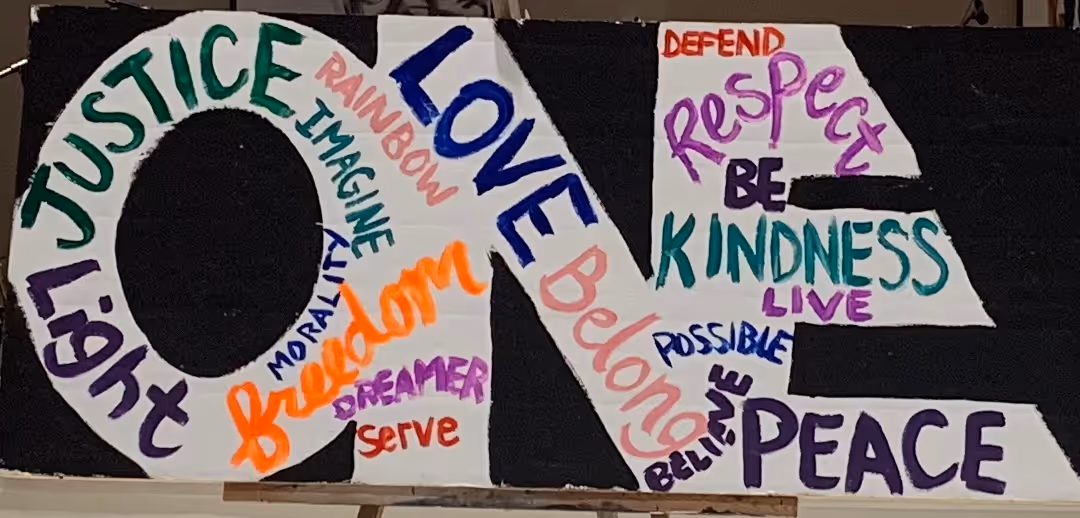 ONE
JUSTICE
Light
RAINBOW
IMAGINE
MORALITY
freedom
DREAMER
serve
LOVE
Belong
DEFEND
Respect
BE
KINDNESS
LIVE
POSSIBLE
BELIEVE
PEACE